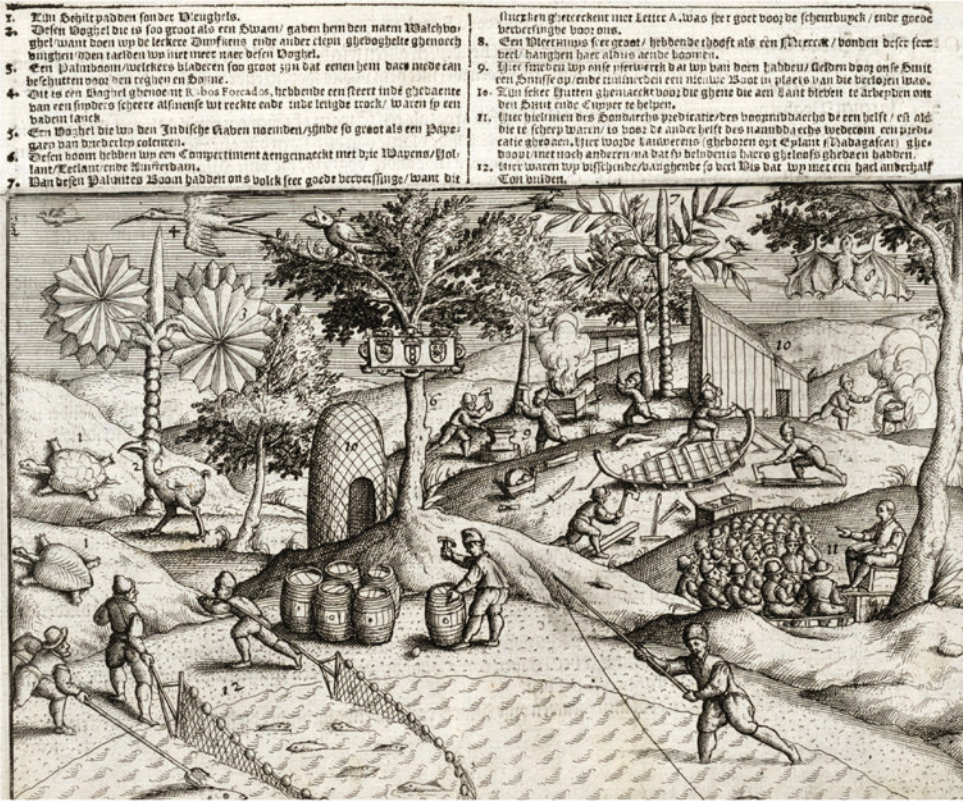 1. Zijn Schilt padden sonder Vleughels.
2. Desen Voghel die is soo groot als een Swaen/ gaven hem den naem Walchvo-
ghel/want doen wy de leckere Duyfkens ende ander cleyn ghevoghelte ghenoech
vinghen/doen taelden wy niet meer naer desen Voghel.
3. Een Palmboom/welckers bladeren soo groot zijn dat eenen hem daer mede can
beschutten voor den reghen en Sonne.
4. Dit is een Voghel ghenoemt Rabos Forcados, hebbende een steert inde ghedaente
van een snyders scheere alsmense wt reckte ende inde lengde trock/ waren sy een
vadem lanck.
5. Een Voghel die wy den Indische Raven noemden/zijnde so groot als een Pape-
gaen van coleuren.
6. Desen boom hebben wy een Compertiment aengemaeckt met drie Wapens/Hol-
lant/Zeelant/ende Amsterdam.
7. Van desen Palmites Boom hadden ons volck seer goede ververssinge/want die
stucken gheteeckent met Letter A. was seer goet voor de scheurbuyck/ ende goede
verversinghe voor ons.
8. Een Vleermuys seer groot/ hebbende thooft als een Meercat/ vonden deser seer
veel/ hanghen haer aldus aende boomen.
9. Hier smeden wy onse yserwerck dat wy van doen hadden/ stelden door onse Smit
een Smisse op/ende timmerden een nieuwe Boot in plaets van die verloren was.
10. Zijn seker Hutten ghemaeckt voor die ghene die aen Lant bleven te arbeyden om
den Smit ende Cuyper te helpen.
11. Hier hielmen des Sondaechs predicatie/des voormiddaechs de een helft/ en als
die te scheep waren/ is voor de ander helft des namiddaechs wederom een predi-
catie ghedaen. Hier worde Lauwerens (gheboren opt Eylant Madagascar) ghe-
doopt/met noch anderen/na dat sy belydenis haers gheloofs ghedaen hadden.
12. Hier waren wy visschende/vanghende so veel Vis dat wy met een hael anderhalf
Ton vulden.
4
3
7
8
10
1
2
10
6
9
1
11
12